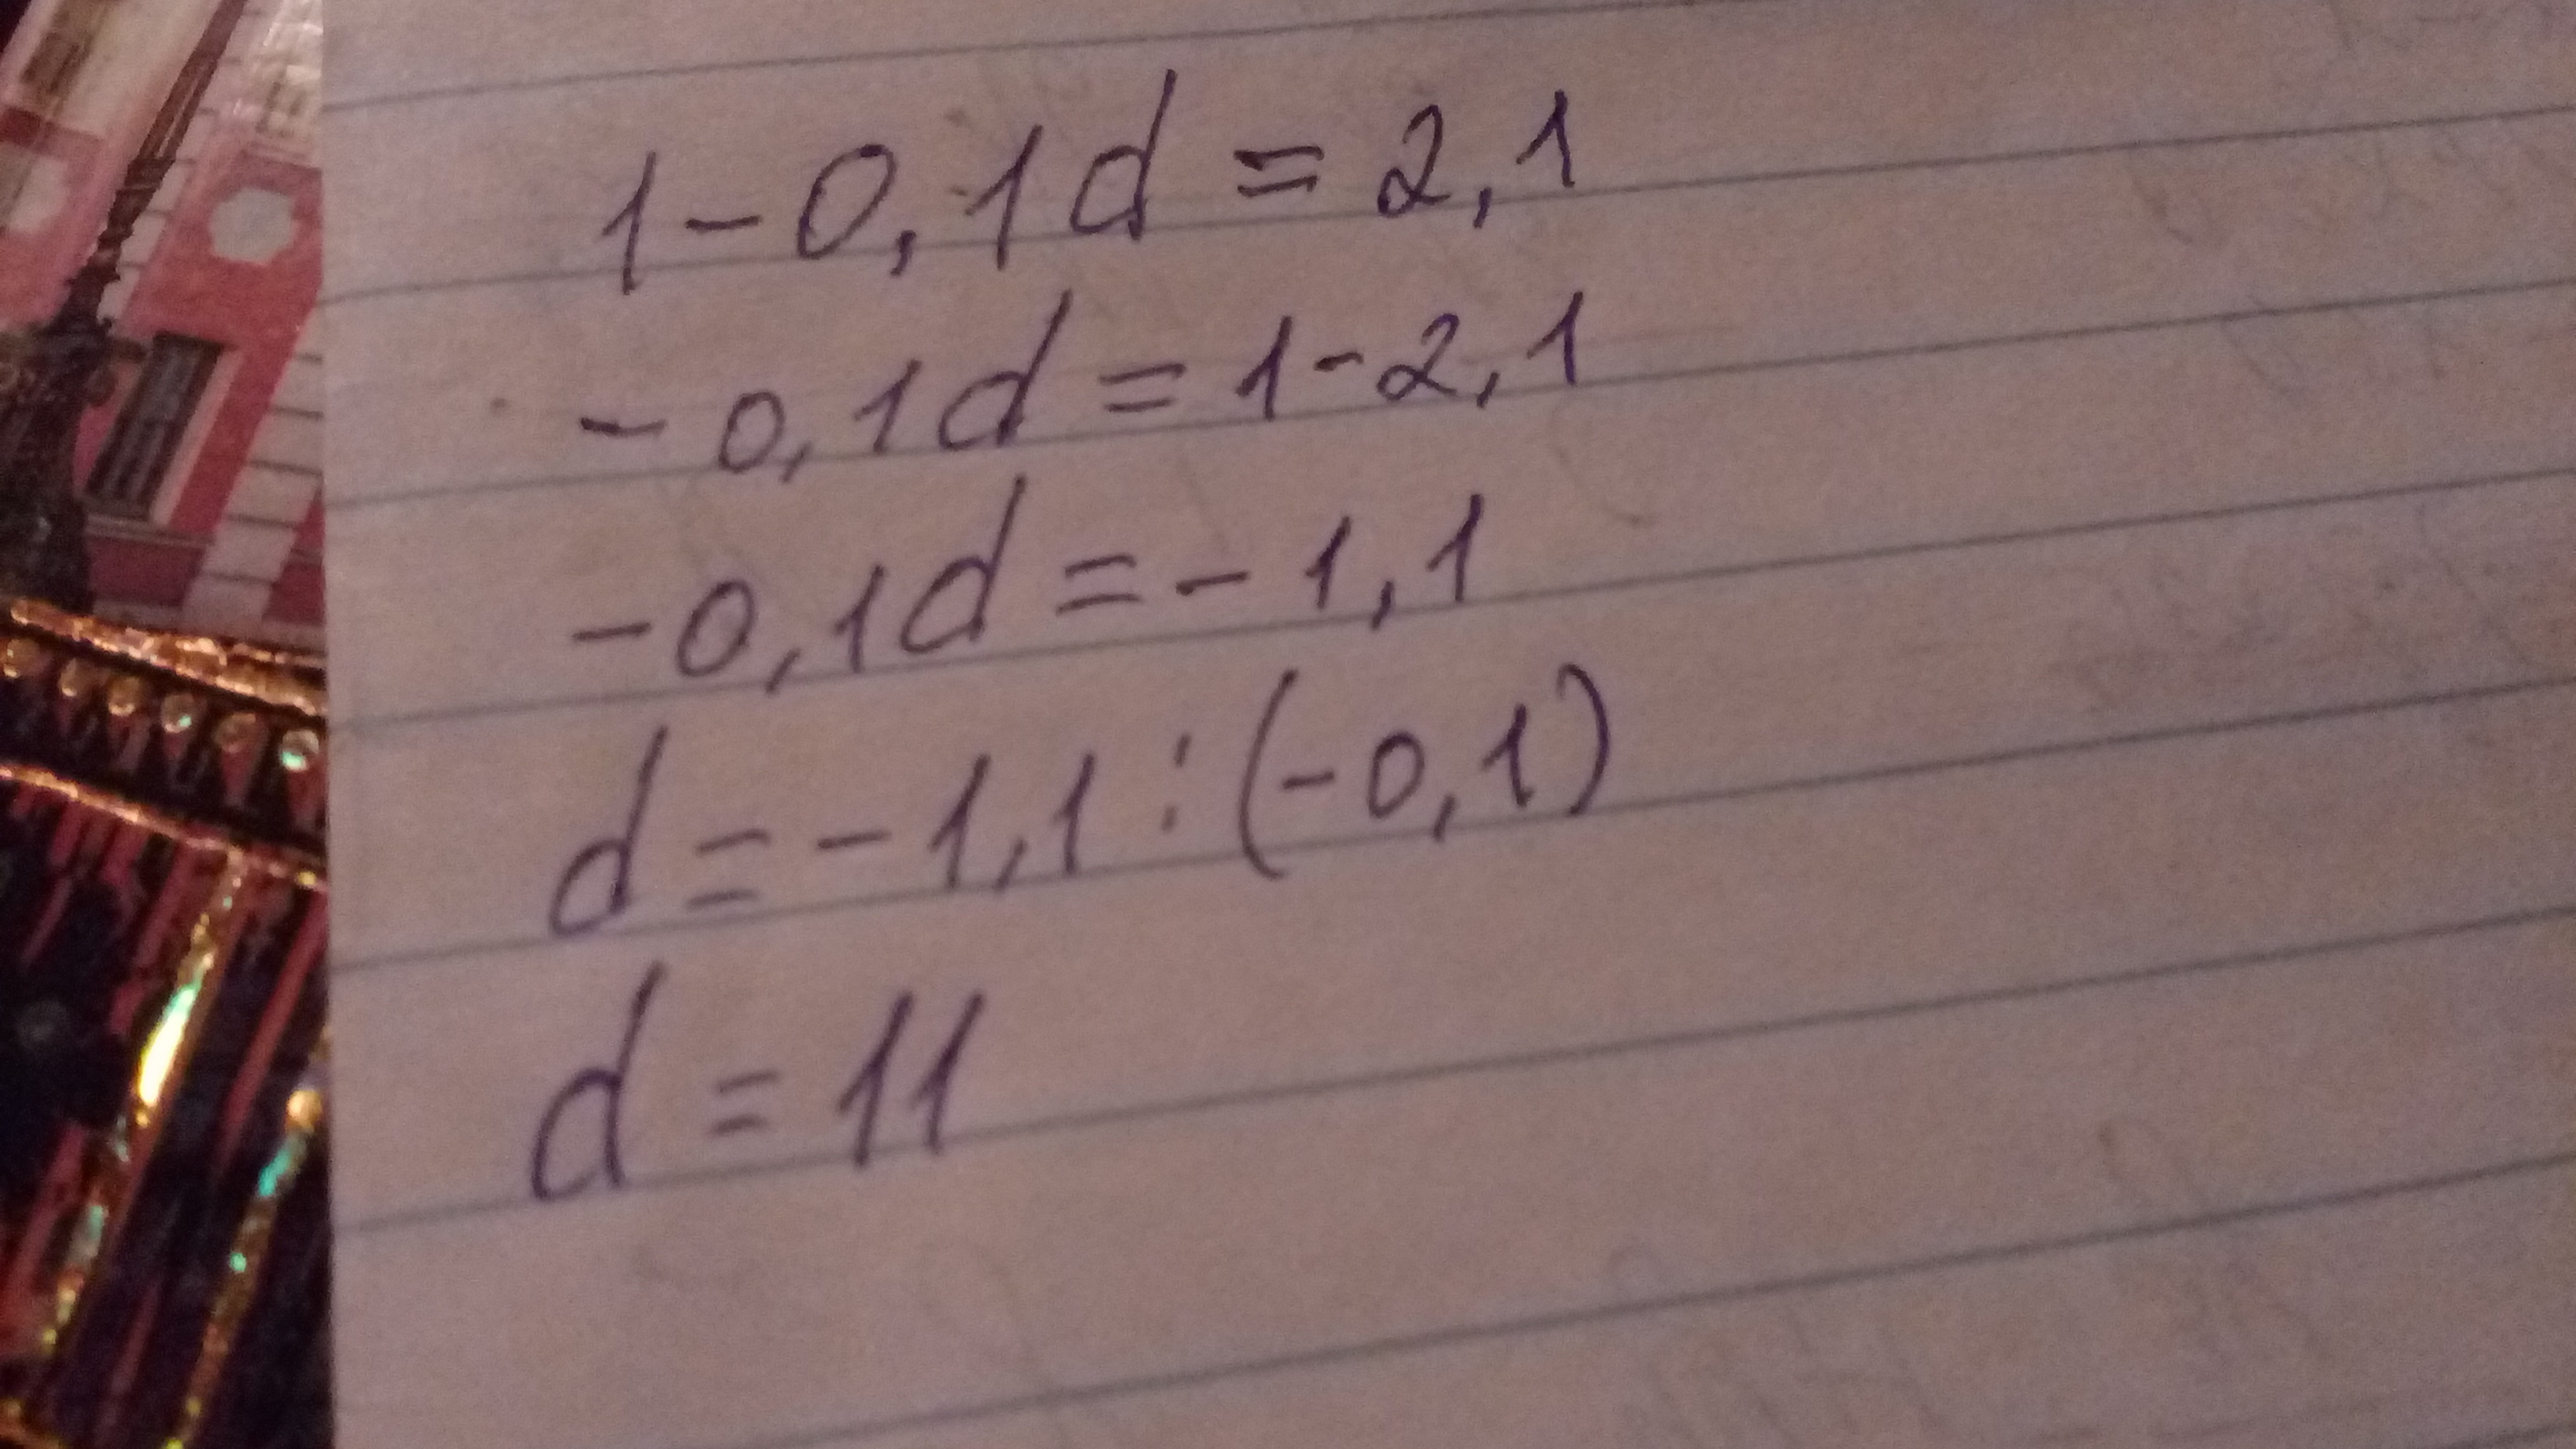 1-0,1d=2,1
-0,1d=1-2,1
-0,1d=-1,1
d=-1,1:(-0,1)
d=11